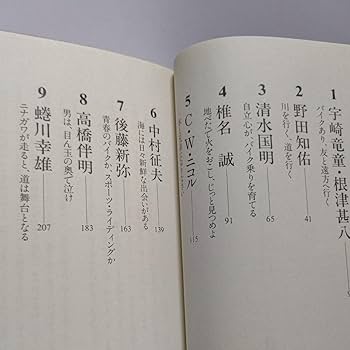 1 宇崎竜童・根津甚八
バイクあり、友と遠方へ行く
2 野田知佑
川を行く、道を行く
41
3 清水国明
自立心が、バイク乗りを育てる
65
4 椎名 誠
地べたで火をおこし、じっと見つめよ
91
5 C・W・ニコル
115
6 中村征夫
海には日々新鮮な出会いがある
139
7 後藤新弥
青春のバイクか、スポーツ・ライディングか
163
8 高橋伴明
男は、目ん玉の奥で泣け
183
9 蜷川幸雄
ニナガワが走ると、道は舞台となる
207